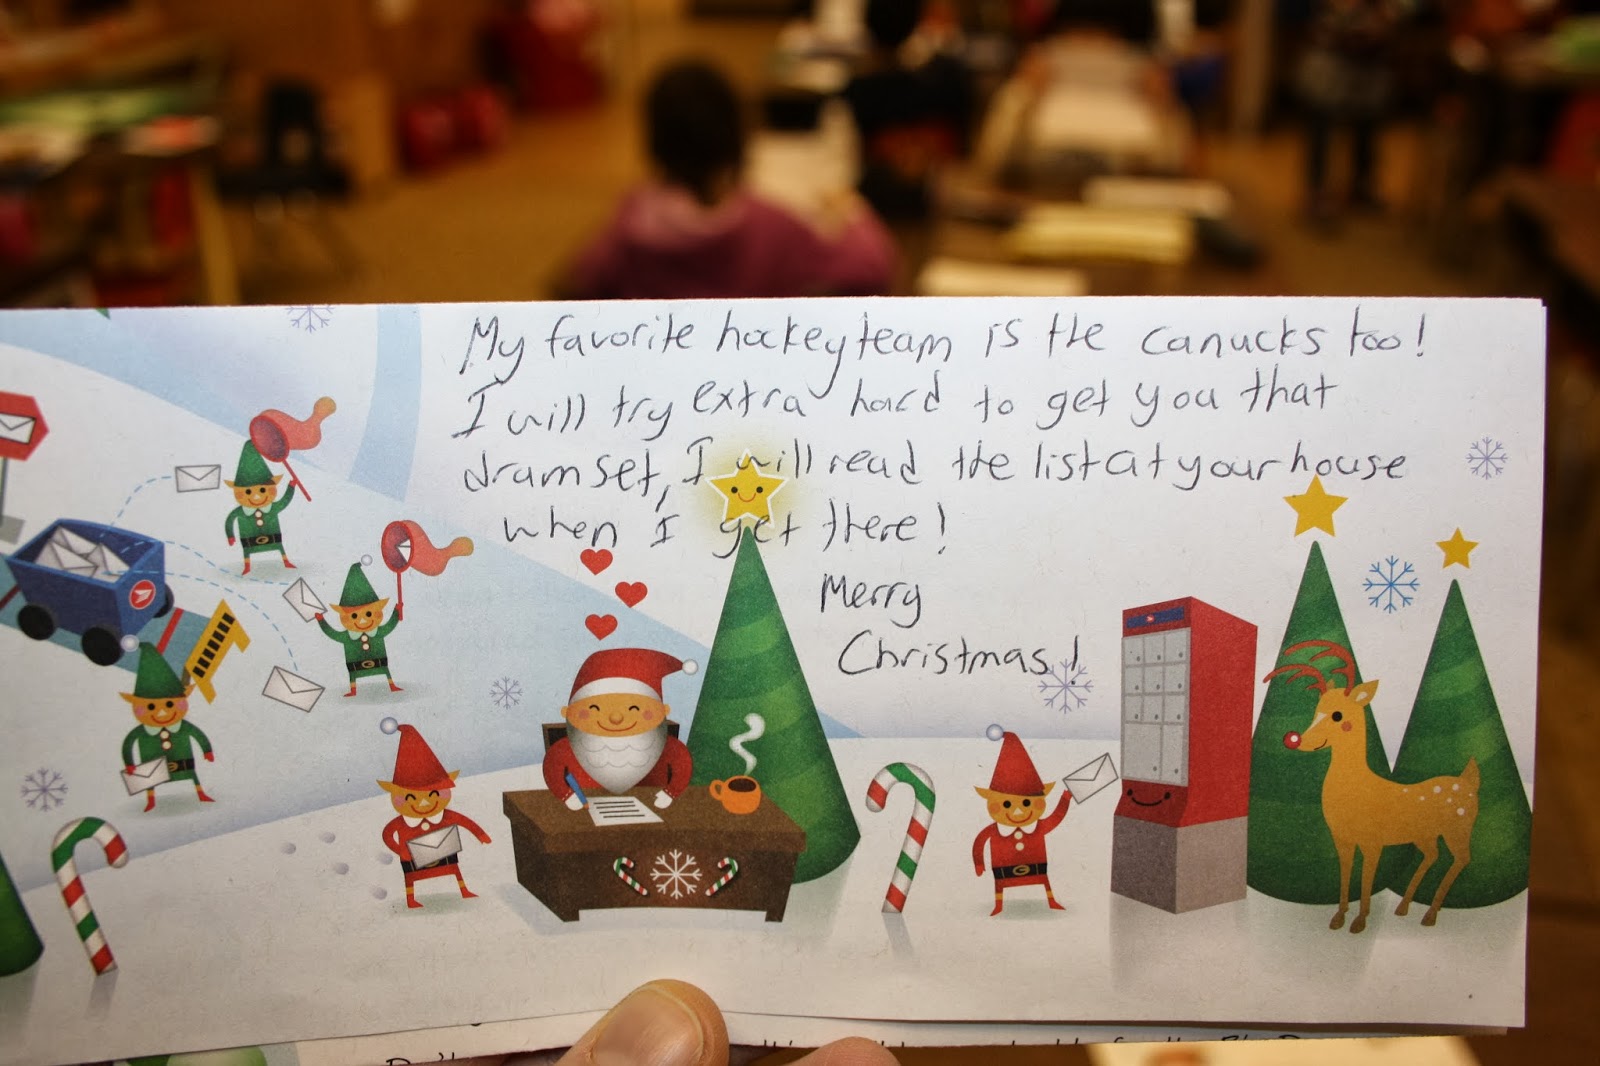 My favorite hockey team is the canucks too!
I will try extra hard to get you that
dram set, I will read the list at your house
when I get there!
Merry
Christmas!